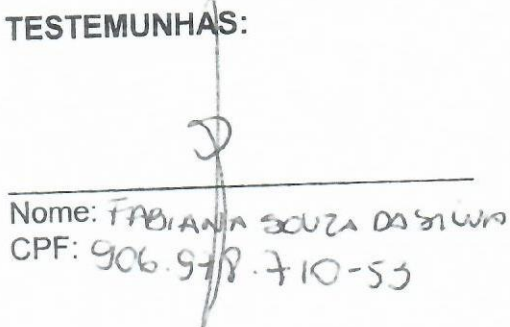 TESTEMUNHAS:
Nome: FABIANA SOUZA DA SILVA
CPF: 906.978.710-53